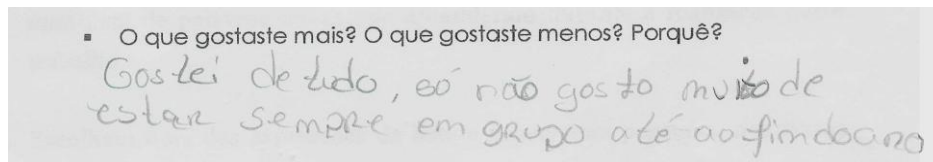 ▪ O que gostaste mais? O que gostaste menos? Porquê?
Gostei de tudo, só não gosto muito de
estar sempre em grupo até ao fim do ano